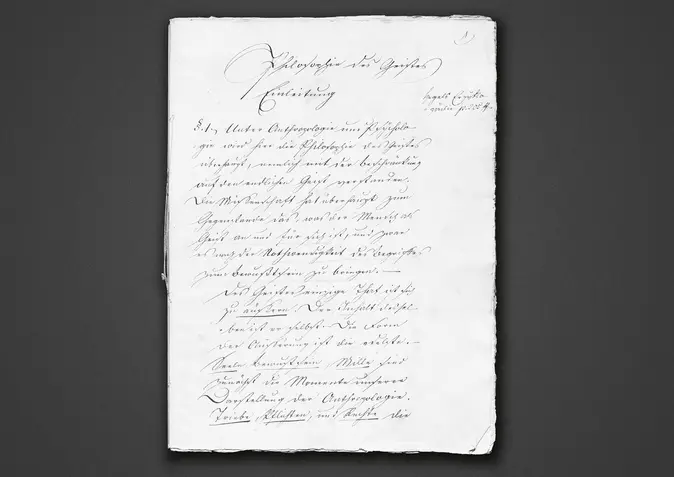 Philosophie des Geistes
Einleitung
Hegels Encyklo-
§. 1. Unter Anthropologie und Psycholo-
gie wird hier die Philosophie des Geistes
überhaupt, nemlich mit der Beschränkung
auf den endlichen Geist verstanden.
Die Wissenschaft hat überhaupt zum
Gegenstande das was der Mensch als
Geist an und für sich ist, und zwar
es nach der Nothwendigkeit des Begriffes
zum Bewußtsein zu bringen. —
Des Geistes einzige That ist sich
zu äußern. Der Inhalt dessel-
ben ist er selbst. Die Form
der Äußerung ist die
Seele Bewustsein Wille sind
zunächst die Momente unserer
Darstellung der Anthropologie.
Triebe, Pflichten, und Rechte der